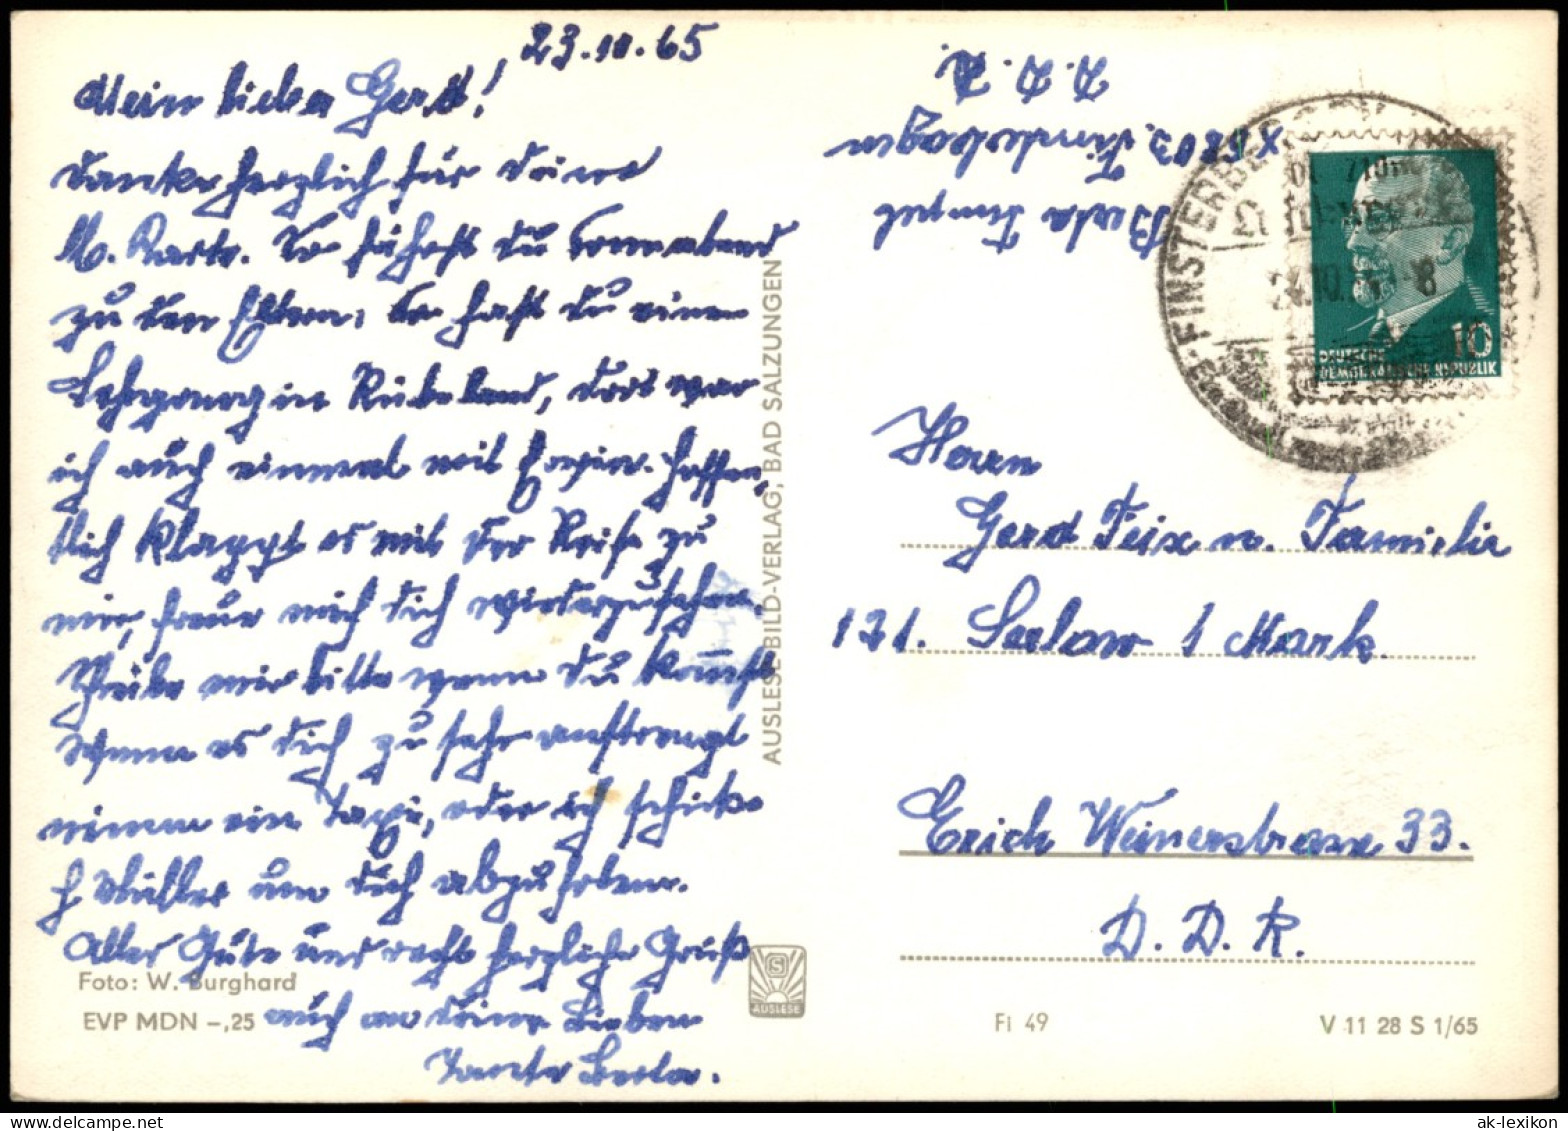 23.10.65
Mein lieber Gerd!
danke herzlich für deine
M. Karte. So fuhest du Sonnabend
zu den Eltern, so hast du einen
Lehrgang in Rübeland, dort war
ich auch einmal mit Erwin. Hoffen,
tlich klappt es mit der Reise zu
mir, freue mich dich wiederzusehen.
Schreibe mir bitte wenn du kommst
Wenn es dich zu sehr anstrengt
nimm ein Taxi, oder ich schicke
H Müller um dich abzuholen.
Alles Gute und recht herzliche Grüße
auch an deine Lieben
Tante Berta.
Foto: W. Burghard
EVP MDN –,25
AUSLESE-BILD-VERLAG, BAD SALZUNGEN
AUSLESE
Berta
D. D. R.
FINSTERBERGEN
8
10
DEUTSCHE
DEMOKRATISCHE REPUBLIK
Herrn
Gerd Feix u. Familie
121. Seelow 1 Mark
Erich Weinerstrasse 33.
D. D. R.
Fi 49
V 11 28 S 1/65
ak-lexikon